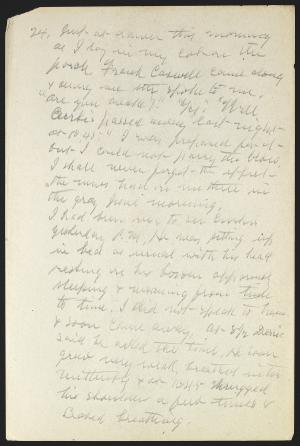 24. Just at dawn this morning
as I lay in my cot on the
porch Frank Caswell came along
& seeing me spoke to me,
"are you awake?" "Yes." "Well
Curtis passed away last night
at 10.45." I was prepared for it
but I could not parry the blow
I shall never forget the effect
the news had on me there in
the gray June morning.
I had been over to see Curtis
yesterday P.M. He was sitting up
in bed as usual with his head
resting on his bosom apparently
sleeping & moaning from time
to time. I did not speak to him
& soon came away. At 8½
said he asked the time, he soon
grew very weak, breathed inter
mittently & at 10.45 shrugged
his shoulders a few times &
ceased breathing.